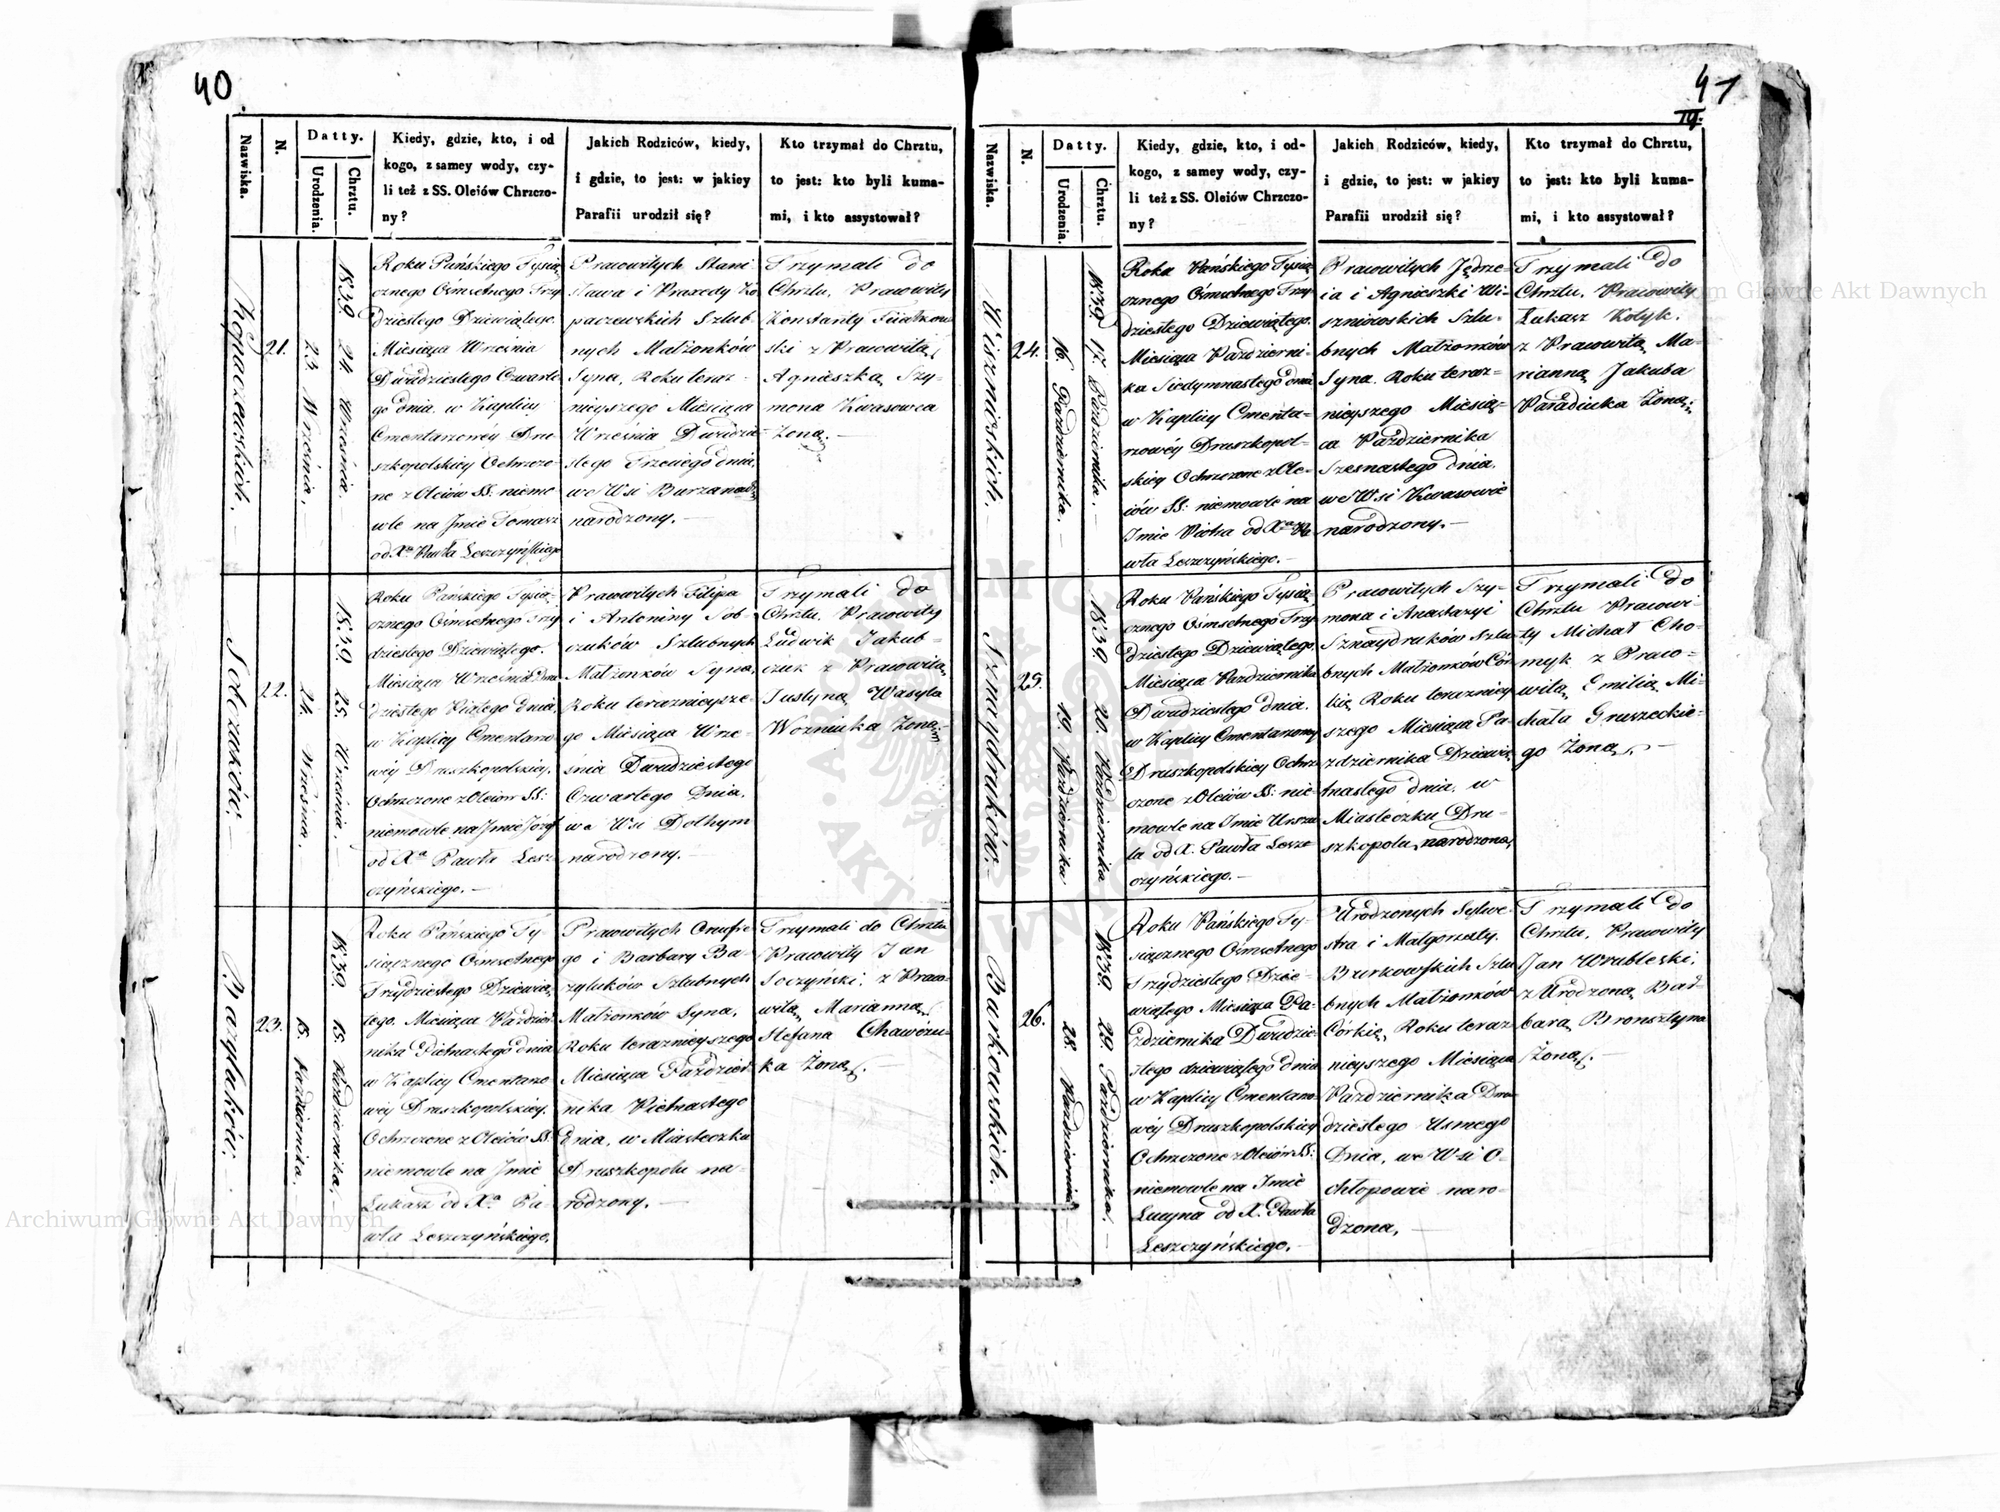 40
Nazwiska.
N.
Datty.
Urodzenia.
Chrztu.
Kiedy, gdzie, kto, i od
kogo, z samey wody, czy-
li też z SS. Oleiów Chrzczo-
ny?
Jakich Rodziców, kiedy,
i gdzie, to jest: w jakiey
Parafii urodził się?
Kto trzymał do Chrztu,
to jest: kto byli kuma-
mi, i kto assystował?
Kopaczewskich.
21.
23. Września.
1839. 24. Września.
Roku Pańskiego Tysią
cznego Ośmsetnego Trzy
dziestego Dziewiątego.
Miesiąca Września
Dwudziestego Czwarte
go dnia. w Kaplicy
Cmentarzowéy Dru
szkopolskiey Ochrzczo
ne z Oleiów SS: niemo
wle na Jmie Tomasz
od Xa Pawła Leszczyńskiego
Pracowitych Stani
sława i Praxedy Ko
paczewskich Szlub-
nych Małżonków
Syna, Roku teraz-
nieyszego Miesiąca
Września Dwudzie-
stego Trzeciego dnia,
we Wsi
narodzony.—
Trzymali do
Chrztu, Pracowity
Konstanty
ski z Pracowitą
Agnieszką Szy-
mona Kwasowca
Żoną.—
Sobczuków.
22.
24. Września.
1839. 25. Września.
Roku Pańskiego Tysią-
cznego Ośmsetnego Trzy
dziestego Dziewiątego.
Miesiąca Września Dwu
dziestego Piątego dnia,
w Kaplicy Cmentarzo
wéy Druszkopolskiey,
Ochrzczone z Oleiów SS:
niemowle na Jmie Jozef
od Xa Pawła Lesz-
czyńskiego.—
Pracowitych Filipa
i Antoniny Sob-
czuków Szlubnych
Małżonków Syna,
Roku teraznieysze-
go Miesiąca Wrze-
śnia Dwudziestego
Czwartego Dnia,
we Wsi Dolhym
narodzony.—
Trzymali do
Chrztu, Pracowity
Ludwik Jakub-
czuk z Pracowitą
Justyną Wasyla
Wozniuka Żoną.
Bazyluków.
23.
15. Października.
1839. 15. Października.
Roku Pańskiego Ty-
siącznego Ośmsetnego
Trzydziestego Dziewią
tego. Miesiąca Paździer
nika Pietnastego dnia
w Kaplicy Cmentarzo
wéy Druszkopolskiey,
Ochrzczone z Oleiów SS.
niemowle na Jmie
Łukasz od Xa Pa-
wła Leszczyńskiego.
Pracowitych Onufre
go i Barbary Ba-
zyluków Szlubnych
Małżonków Syna,
Roku teraznieyszego
Miesiąca Paździer-
nika Pietnastego
Dnia, w Miasteczku
Druszkopolu na-
rodzony.—
Trzymali do Chrztu
Pracowity Jan
Soczyński, z Praco-
witą Marianną,
Stefana
ka Żoną.—
41
Nazwiska.
N.
Datty.
Urodzenia.
Chrztu.
Kiedy, gdzie, kto, i od-
kogo, z samey wody, czy-
li też z SS. Oleiów Chrzczo-
ny?
Jakich Rodziców, kiedy,
i gdzie, to jest: w jakiey
Parafii urodził się?
Kto trzymał do Chrztu,
to jest: kto byli kuma-
mi, i kto assystował?
Wiszniowskich.
24.
16. Października.—
1839. 17. Października.—
Roku Pańskiego Tysią
cznego Ośmsetnego Trzy
dziestego Dziewiątego.
Miesiąca Październi-
ka Siedymnastego dnia
w Kaplicy Cmenta-
rzowéy Druszkopol-
skiey Ochrzczone z Ole-
iów SS: niemowle na
Jmie Piotra od Xa Pa
wła Leszczyńskiego.—
Pracowitych Jędrze-
ia i Agnieszki Wi-
szniowskich Szlu-
bnych Małżonków
Syna. Roku teraz-
nieyszego Miesią-
ca Października
Szesnastego dnia,
we Wsi Kwasowie
narodzony.—
Trzymali do
Chrztu, Pracowity
Łukasz Kotyk.
z Pracowitą Ma-
rianną Jakuba
Paradiuka Żoną.
Sznaydruków.
25.
19. Października
1839. 20. Października
Roku Pańskiego Tysią
cznego Ośmsetnego Trzy
dziestego Dziewiątego,
Miesiąca Października
Dwudziestego dnia.
w Kaplicy Cmentarzowey
Druszkopolskiey Ochrz
czone z Oleiów SS: nie-
mowle na Jmie Urszu
la od X. Pawła Lesz-
czyńskiego.—
Pracowitych Szy-
mona i Anastazyi
Sznaydruków Szlu-
bnych Małżonków Cór
kię Roku terazniey
szego Miesiąca Pa
zdziernika Dziewię
tnastego dnia, w
Miasteczku Dru-
szkopolu narodzona,
Trzymali do
Chrztu Pracowi-
ty Michał Cho-
myk z Praco-
witą Emilią Mi-
chała Gruszeckie-
go Żoną.—
Burkowskich.
26.
28. Października
1839. 29. Października.
Roku Pańskiego Ty-
siącznego Ośmsetnego
Trzydziestego Dzie-
wiątego Miesiąca Pa-
ździernika Dwudzie-
stego dziewiątego dnia
w Kaplicy Cmentarzo-
wéy Druszkopolskiey
Ochrzczone z Oleiów SS:
niemowle na Jmie
Lucyna od X. Pawła
Leszczyńskiego.—
Urodzonych Sylwe-
stra i Małgorzaty.
Burkowskich Szlu
bnych Małżonków
Córkię, Roku teraz
nieyszego Miesiąca
Października Dwu
dziestego Usmego
Dnia, we Wsi O-
chłopowie naro-
dzona,—
Trzymali do
Chrztu, Pracowity
Jan Wrubleski,
z Urodzoną Bar
barą Bronsztyna
Żoną.—
Archiwum Główne Akt Dawnych
Archiwum Główne Akt Dawnych